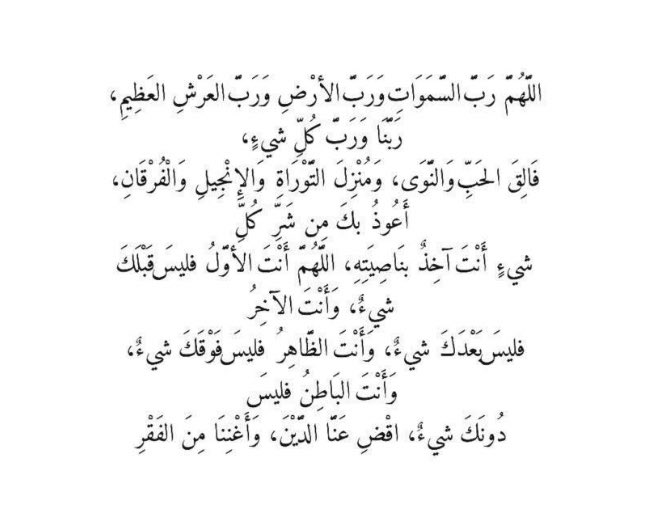 اللَّهُمَّ رَبَّ السَّمَوَاتِ وَرَبَّ الأرْضِ وَرَبَّ العَرْشِ العَظِيمِ،
رَبَّنَا وَرَبَّ كُلِّ شيءٍ،
فَالِقَ الحَبِّ وَالنَّوَى، وَمُنْزِلَ التَّوْرَاةِ وَالإِنْجِيلِ وَالْفُرْقَانِ،
أَعُوذُ بكَ مِن شَرِّ كُلِّ
شيءٍ أَنْتَ آخِذٌ بنَاصِيَتِهِ، اللَّهُمَّ أَنْتَ الأوَّلُ فليسَ قَبْلَكَ
شيءٌ، وَأَنْتَ الآخِرُ
فليسَ بَعْدَكَ شيءٌ، وَأَنْتَ الظَّاهِرُ فليسَ فَوْقَكَ شيءٌ،
وَأَنْتَ البَاطِنُ فليسَ
دُونَكَ شيءٌ، اقْضِ عَنَّا الدَّيْنَ، وَأَغْنِنَا مِنَ الفَقْرِ